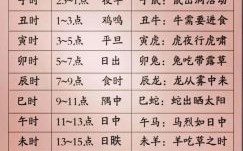 子时 23~1点
丑时 1~3点 鸡鸣 丑牛:牛需要进食
寅时 3~5点 平旦 寅虎:虎夜行虎啸
卯时 5~7点 日出 卯兔:兔吃带露草
辰时 7~9点 食时 辰龙:龙从雾中来
巳时 9~11点 隅中 巳蛇:蛇出晒太阳
午时 11~13点 日中 午马:马烈如日中
未时 13~15点 日昳 未羊:羊吃草之时